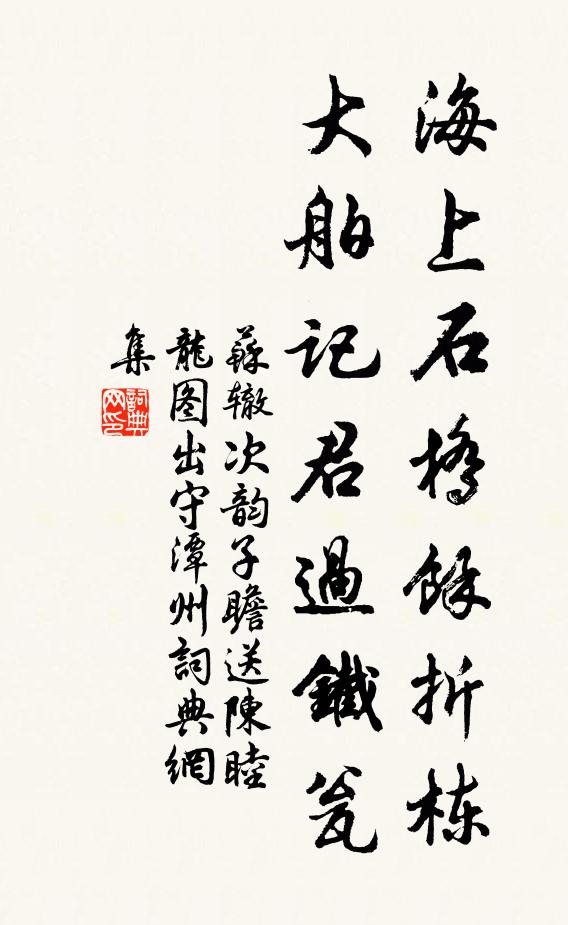 海上石橋餘折栋
大舶记君過鐵瓮
蘇辙次韵子瞻送陳睦
龍图出守潭州詞典網
集
詞典网印